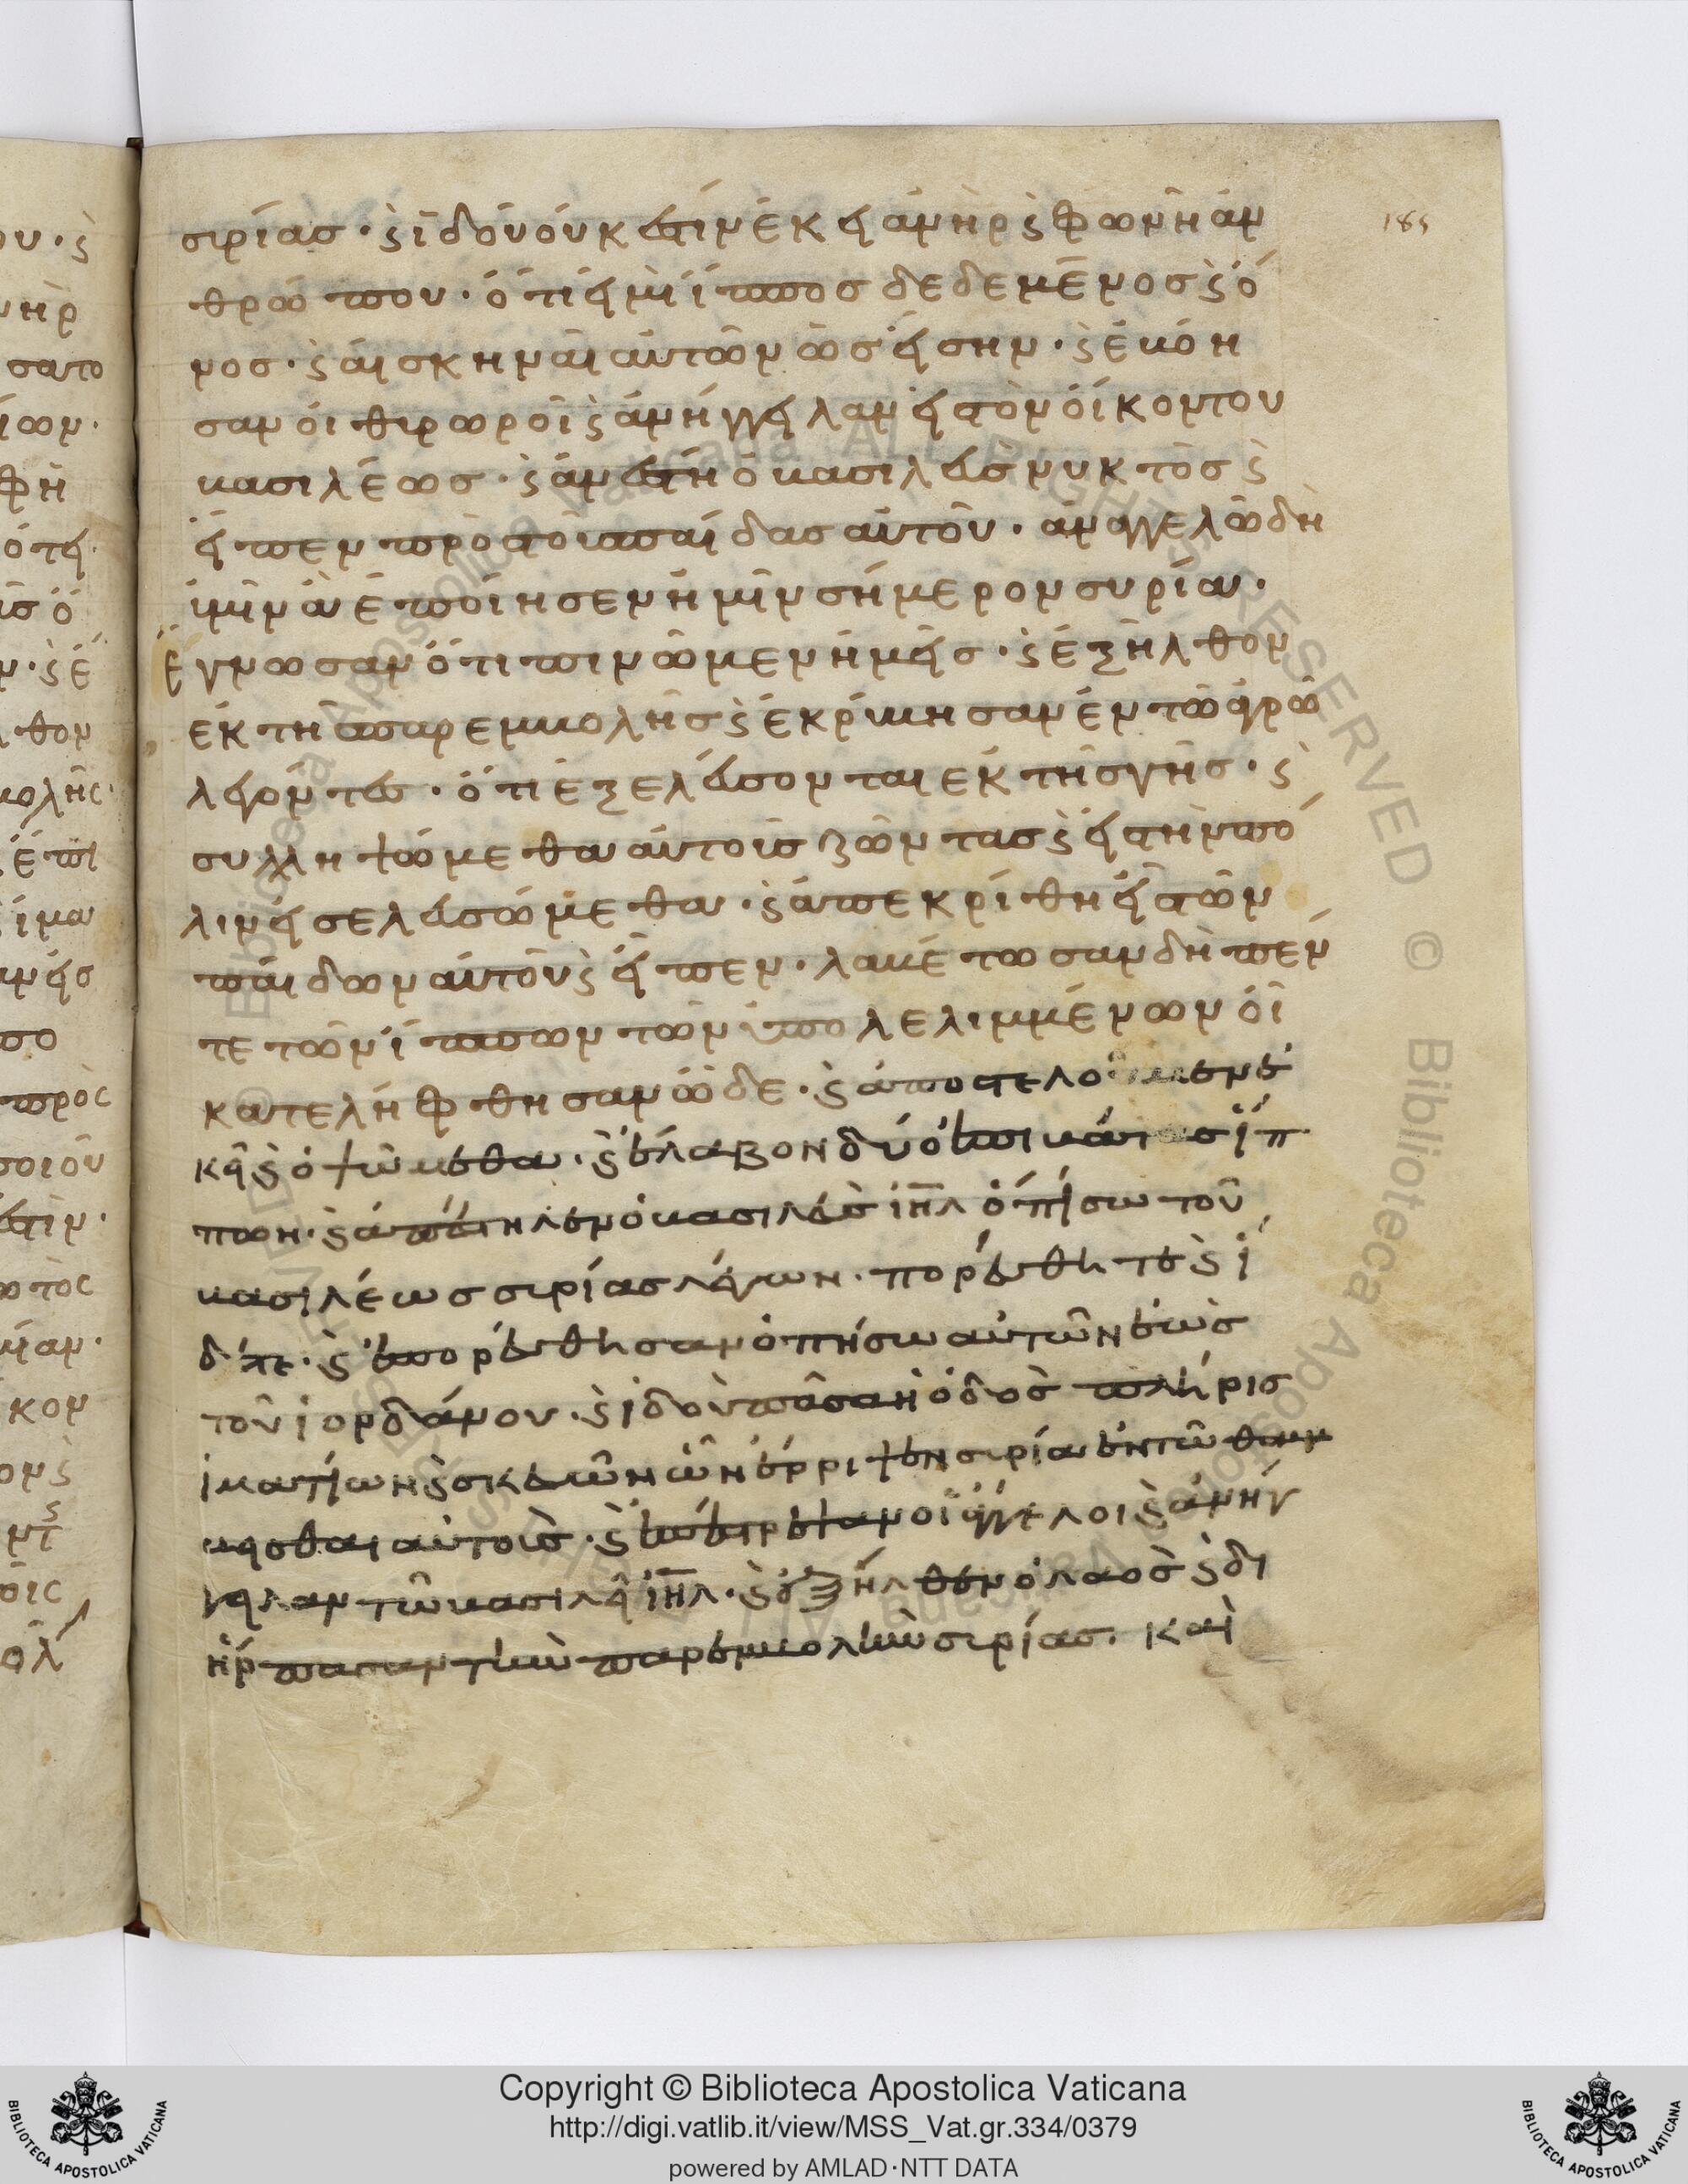 συρίασ · ϛ ἰδοὺ οὐκ ἔστιν ἐκεῖ ἀνὴρ ϛ φωνὴ ἀν
θρώπου · ὅτι εἰ μὴ ἵπποσ δεδεμένοσ ϛ ὄ
νοσ · ϛ αἱ σκηναὶ αὐτῶν ὡσ εἰσὴν · ϛ ἐβόη
σαν οἱ θυρωροὶ ϛ ἀνήγγειλαν εἰσ τὸν οἶκον του
βασιλέωσ · ϛ ἀνέστη ὁ βασιλεὺσ νυκτὸσ ϛ
εἶπεν πρὸσ τοὺσ παῖδασ αὐτοῦ · ἀναγγελῶ δὴ
ὑμῖν ἃ ἐποίησεν ἡμῖν σήμερον συρία ·
ἔγνωσαν ὅτι πινῶμεν ἡμεῖσ · ϛ ἐξῆλθον
ἐκ τῆσ παρεμβολῆσ ϛ ἐκρύβησαν ἐν τῶ ἀγρῶ
λέγοντεσ · ὅτι ἐξελεύσονται ἐκ τῆσ γῆσ · ϛ
συλληψώμεθα αὐτοὺσ ζῶντασ ϛ εἰσ τὴν πό
λιν εἰσελευσώμεθα · ϛ ἀπεκρίθη εἷσ τῶν
παίδων αὐτοῦ ϛ εἶπεν · λαβέτωσαν δὴ πέν
τε τῶν ἵππων τῶν ὑπολελιμμένων οἳ
κατελήφθησαν ὧδε · ϛ ἀποστελοῦμεν ἐ
κεῖ ϛ ὀψώμεθα · ϛ ἔλαβον δύο ἐπιβάτασ ἵπ
πων · ϛ ἀπέστηλεν ὁ βασιλεὺσ ιηλ ὀπίσω τοῦ
βασιλέωσ συρίασ λέγων · πορεύθητε ϛ ἴ
δετε · ϛ ἐπορεύθησαν ὀπήσω αὐτῶν ἕωσ
τοῦ ἰορδάνου · ϛ ἰδοὺ πᾶσα ἡ ὁδὸσ πλήρισ
ἱματίων ϛ σκευῶν ὧν ἔρριψεν συρία ἐν τῶ θαμ
βεῖσθαι αὐτοὺσ · ϛ ἐπέστρεψαν οἱ ἄγγελοι ϛ ἀνήγ
γειλαν τῶ βασιλεῖ ιηλ · ϛ ἐξῆλθεν ὁ λαὸσ ϛ δι
ήρπασαν τὴν παρεμβολὴν συρίασ. καὶ
Copyright © Biblioteca Apostolica Vaticana
http://digi.vatlib.it/view/MSS_Vat.gr.334/0379
powered by AMLAD·NTT DATA